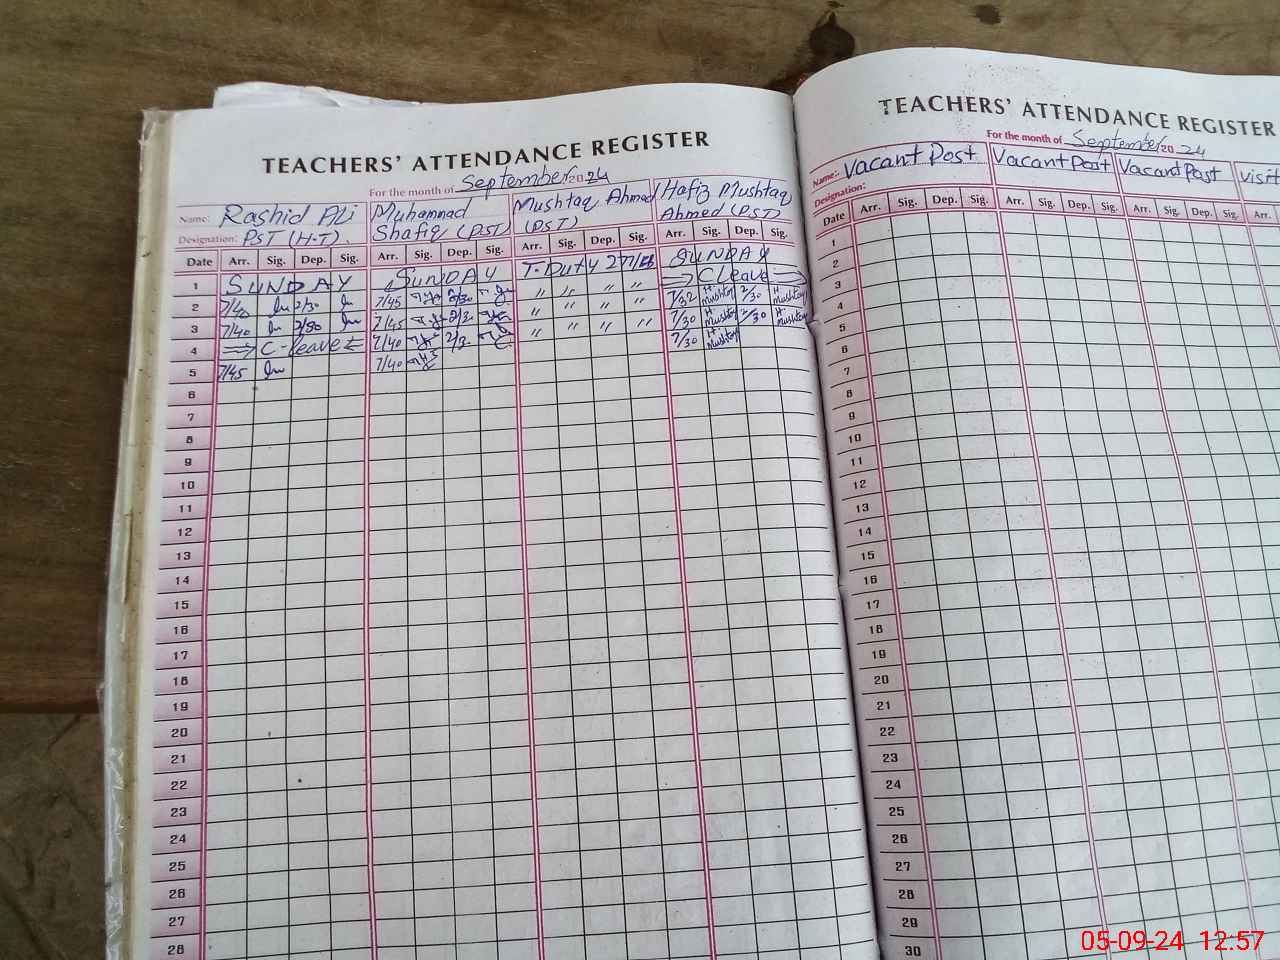 TEACHERS' ATTENDANCE REGISTER
For the month of September 2024
Name: Rashid Ali
Muhammad
Mushtaq Ahmad
Hafiz Mushtaq
Designation: PST (H.T).
Shafiq (PST)
(PST)
Ahmed (PST)
Date Arr. Sig. Dep. Sig. Arr. Sig. Dep. Sig. Arr. Sig. Dep. Sig. Arr. Sig. Dep. Sig.
1 SUNDAY SUNDAY T. Duty SUNDAY
2 7/40 2/30 7/45 2/30 " " " " C Leave
3 7/40 7/45 " " " " 7/32 H Mushtaq 2/30 H Mushtaq
4 C-leave 7/40 " " " " 7/30 H Mushtaq 2/30 H Mushtaq
5 7/45 7/40 7/30 H Mushtaq
6
7
8
9
10
11
12
13
14
15
16
17
18
19
20
21
22
23
24
25
26
27
28
TEACHERS' ATTENDANCE REGISTER
For the month of September 2024
Name:. Vacant Post Vacant Post Vacant Post visit
Designation:
Date Arr. Sig. Dep. Sig. Arr. Sig. Dep. Sig. Arr. Sig. Dep. Sig. Arr.
1
2
3
4
5
6
7
8
9
10
11
12
13
14
15
16
17
18
19
20
21
22
23
24
25
26
27
28
29
30
05-09-24 12:57